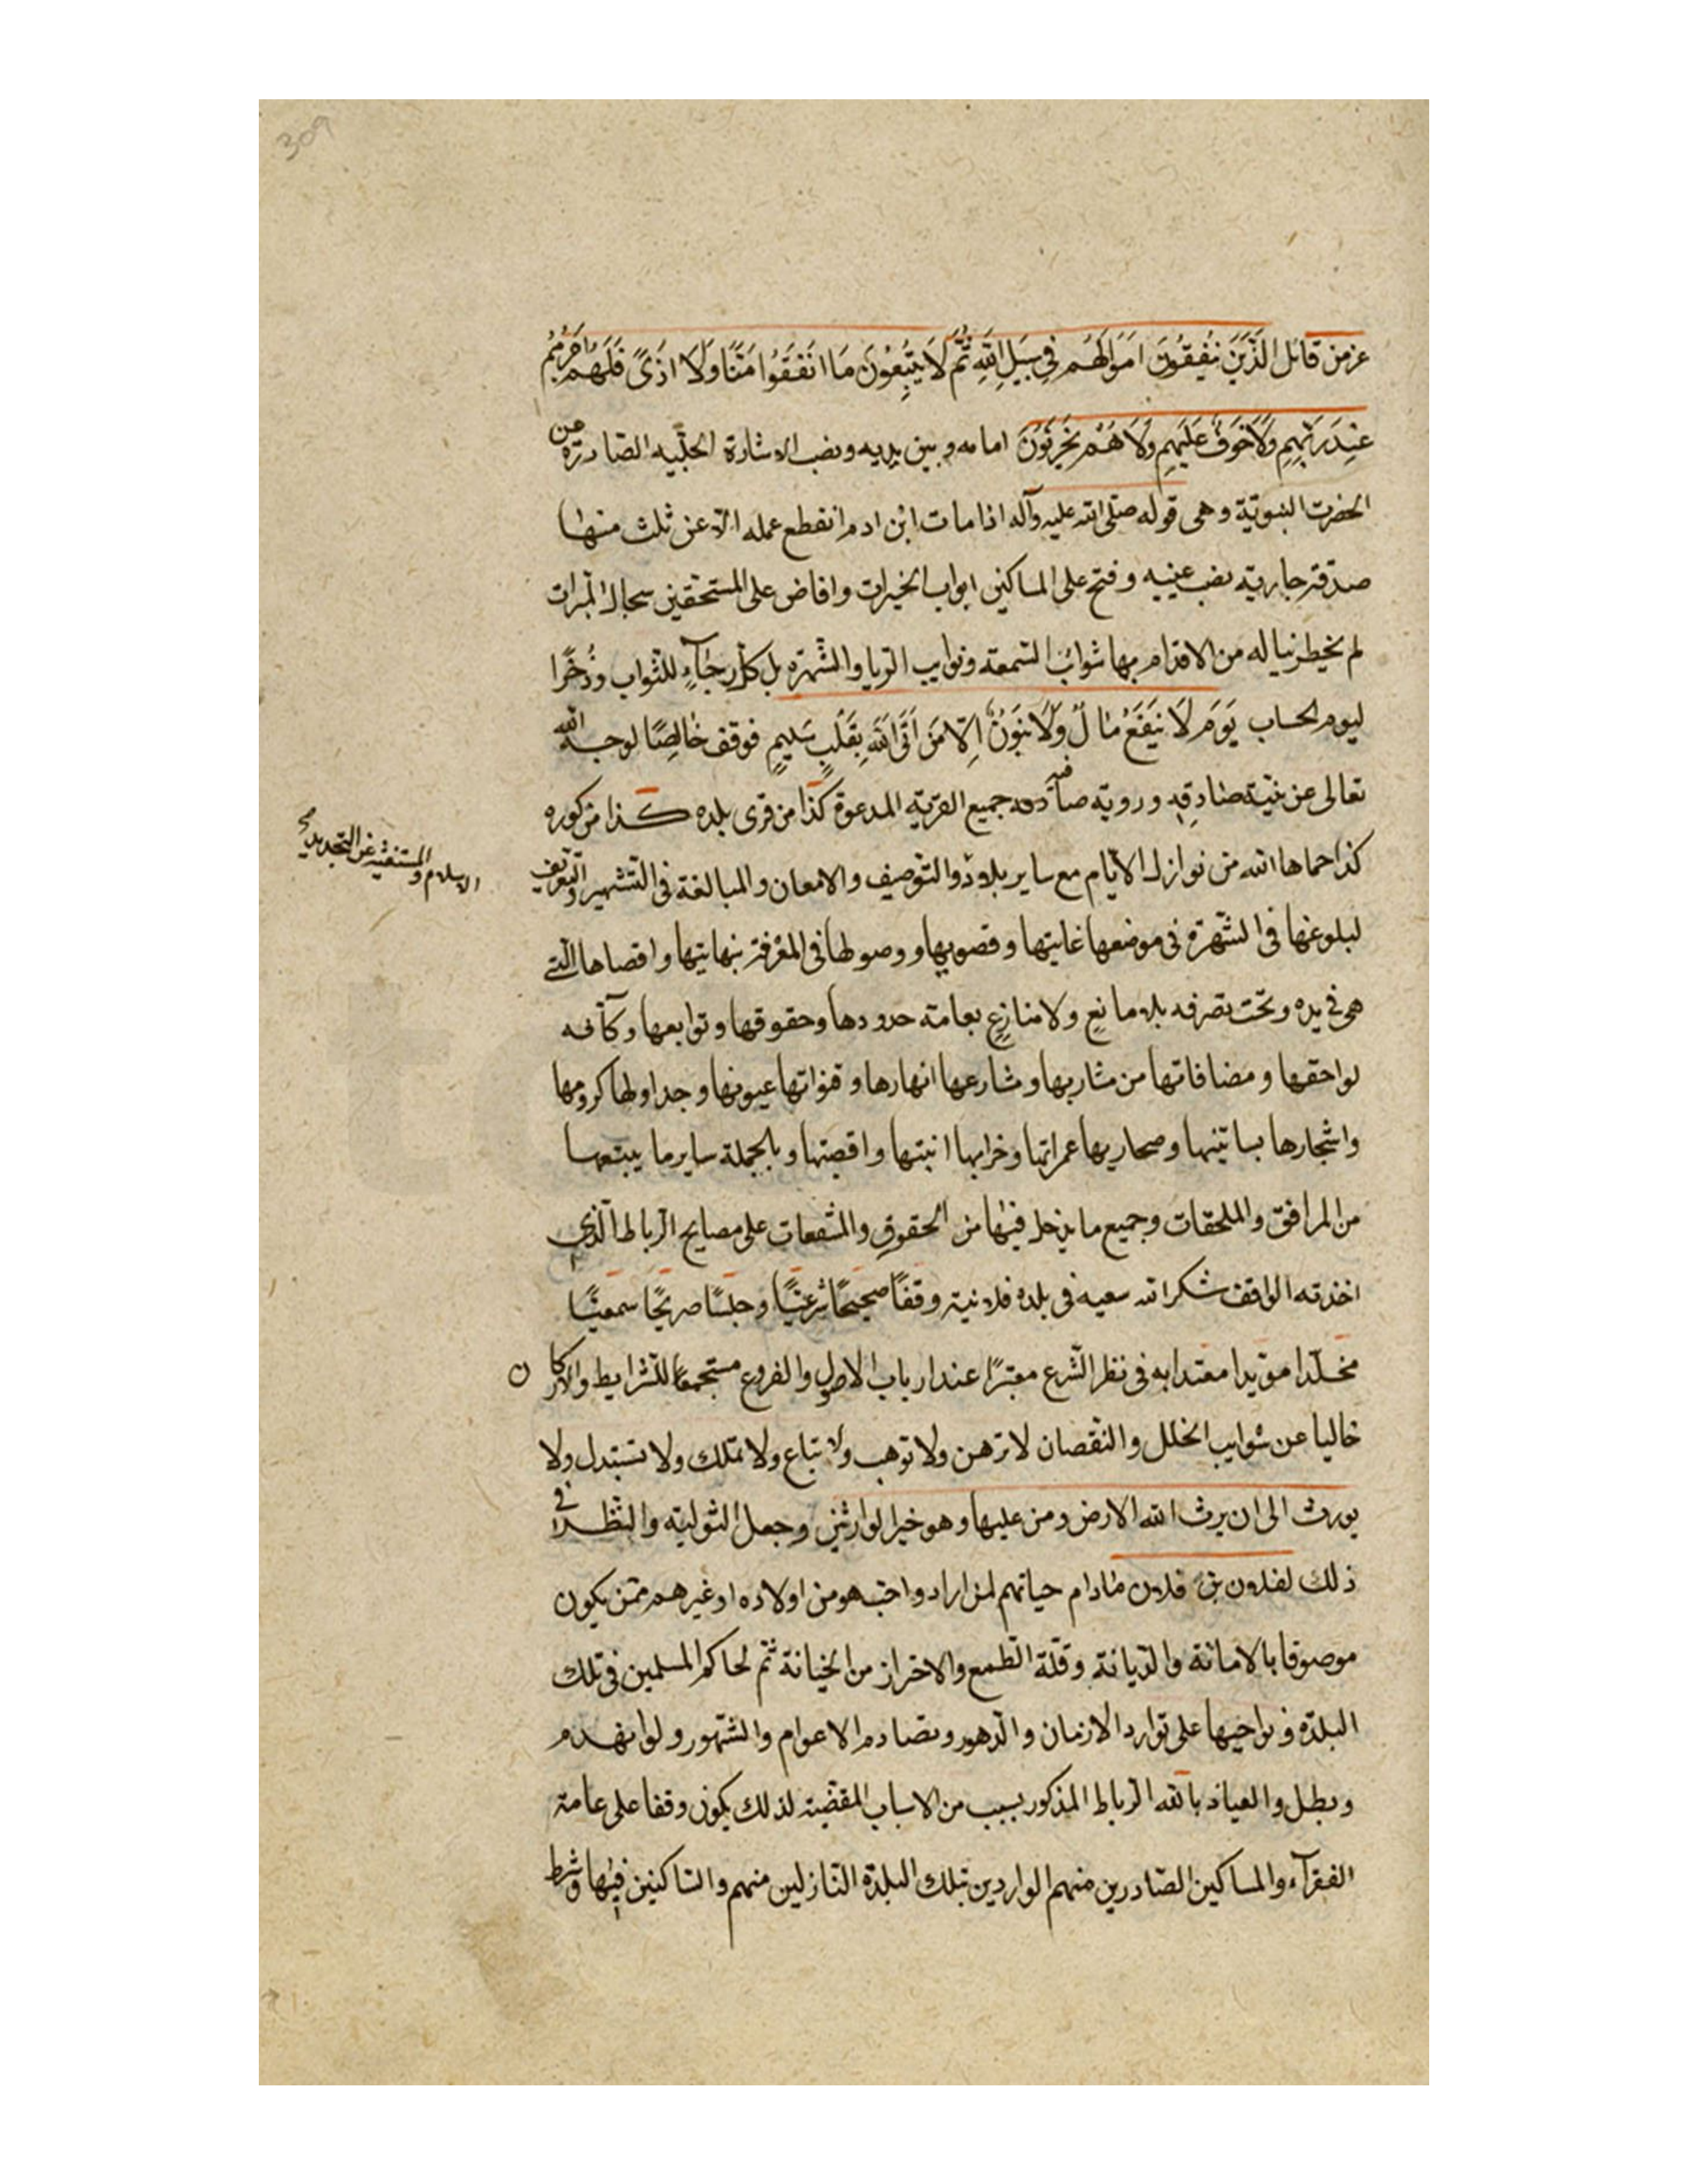 309
عز من قائل الَّذِينَ يُنْفِقُونَ اَمْوَالَهُمْ فِي سَبِيلِ اللهِ ثُمَّ لَا يُتْبِعُونَ مَا اَنْفَقُوا مَنًّا وَلَا اَذًى فَلَهُمْ اَجْرُهُمْ
عِنْدَ رَبِّهِمْ وَلَا خَوْفٌ عَلَيْهِمْ وَلَا هُمْ يَحْزَنُونَ امامه و بين يديه ونصب الاشارة الجلّيه الصّادرة من
الحضرت النبويّة وهى قوله صلّى الله عليه وآله اذا مات ابن ادم انقطع عمله الّا عن ثلث منها
صدقة جارية نصب عينيه وفتح على المساكين ابواب الخيرات وافاض على المستحقين سجال المبرات
لم يخطر بباله من الاقدام بها شوائب السّمعة ونوايب الريا والشّهرة بل كل رجَآءٍ للثواب وذُخرًا
ليوم الحساب يَوْمَ لَا يَنْفَعُ مَالٌ وَلَا بَنُوْنٌ اِلَّا مَنْ اَتَى اللهَ بِقَلْبٍ سَلِيمٍ فوقف خالِصًا لوجه الله
تعالى عن نيّة صادقةٍ وروية صافية جميع القرية المدعوة كذا من قرى بلده كذا من كوره
كذا حماها الله من نوازل الايّام مع ساير بلاد والتوصيف والامعان والمبالغة فى التشهير والتعريف
الاسلام والمستغنية عن التجديد صح
لبلوغها فى الشّهرة فى موضعها غايتها وقصويها ووصولها فى المعْرفة نهايتها واقصاها الّتى
هى فى يده وتحت تصرفه بلا مانعٍ ولا منازعٍ بعامة حدودها وحقوقها وتوابعها وكآفه
لواحقها ومضافاتها من مشاربها ومشارعها انهارها وقنواتها عيونها وجداولها كرومها
واشجارها بساتينها وصحاريها عمراتها وخرابها ابنيتها واقصيتها وبالجملة ساير ما يتبعها
من المرافق والملحقات وجميع ما يدخل فيها من الحقوق والمشفعات على مصايح الرباط الّذى
اخذته الواقف شكر الله سعيه فى بلده فلانية وقفًا صحيحًا شرعيًّا وحبسًا صريحًا سمعيًّا
مخلّدا مؤيدا معتدا به فى نظر الشّرع معتبرًا عند ارباب الاصول والفروع مستجمعًا للشرايط والاركان
خاليا عن شوايب الخلل والنقصان لا ترهن ولا توهب ولا تباع ولا تملك ولا تستبدل ولا
يورث الى ان يرث الله الارض ومن عليها وهو خير الوارثين وجعل التولية والنّظر فى
ذلك لفلان بن فلان مادام حياتهم لمن اراد واحبّ هو من اولاده او غيرهم ممّن يكون
موصوفا بالامانة والدّيانة وقلّة الطمع والاحتراز من الخيانة ثمّ لحاكم المسلمين فى تلك
البلدة ونواحيها على توارد الازمان والدّهور وتصادم الاعوام والشّهور ولو انهدم
وبطل والعياذ بالله الرباط المذكور بسبب من الاسباب المقضيّة لذلك يكون وقفا على عامة
الفقرآء والمساكين الصّادرين منهم الواردين بتلك البلدة النّازلين منهم والسّاكنين فيها وشرط